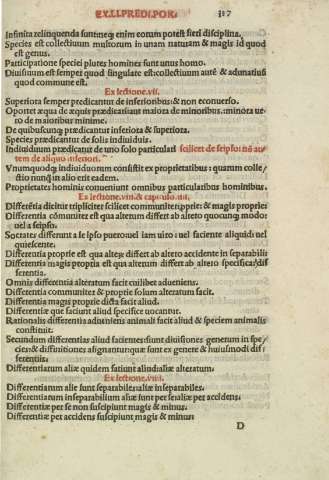 EX LI. PREDI. POR. 127
Infinita relinquenda sunt: neq; enim eorum potest fieri disciplina.
Species est collectiuum multorum in unam naturam & magis id quod
est genus.
Participatione speciei plures homines sunt unus homo.
Diuisiuum est semper quod singulare est: collectiuum autē & adunatiuū
quod commune est.
Ex lectione .vii.
Superiora semper predicantur de inferioribus: & non econuerso.
Oportet æqua de æquis prædicari: aut maiora de minoribus. minora ue
ro de maioribus minime.
De quibuscunq; prædicantur inferiora & superiora.
Species prædicantur de solis indiuiduis.
Indiuiduum prædicatur de uno solo particulari scilicet de seipso: nō au
tem de aliquo inferiori.
Vnumquodq; indiuiduorum consistit ex proprietatibus: quarum colle/
ctio nunq̄ in alio erit eadem.
Proprietates hominis conueniunt omnibus particularibus hominibus.
Ex lectione .viii. & capitulo .iii.
Differētia dicitur tripliciter scilicet communiter: proprie: & magis proprie
Differentia cōmuniter est qua alterum differt ab altero quocunq; modo:
uel a seipso.
Socrates differt a se ipso puero: uel iam uiro: uel faciente aliquid: uel
quiescente.
Differentia proprie est qua alterū differt ab altero accidente in separabili
Differentia magis propria est qua alterum differt ab altero specifica dif
ferentia.
Omnis differentia alteratum facit cuilibet adueniens.
Differentia communiter & proprie solum alteratum facit.
Differentia magis proprie dicta facit aliud.
Differentiæ que faciunt aliud specifice uocantur.
Rationalis differentia adueniens animali facit aliud & speciem animalis
constituit.
Secundum differentias aliud facientes: fiunt diuisiones generum in spe/
cies: & diffinitiones assignantur: que sunt ex genere & huiusmodi dif
ferentiis.
Differentiarum aliæ quidem faciunt aliud: aliæ alteratum.
Ex lectione .viiii.
Differentiarum aliæ sunt separabiles: aliæ inseparabiles.
Differentiarum inseparabilium aliæ sunt per se: aliæ per accidens.
Differentiæ per se non suscipiunt magis & minus.
Differentiæ per accidens suscipiunt magis & minus.
D